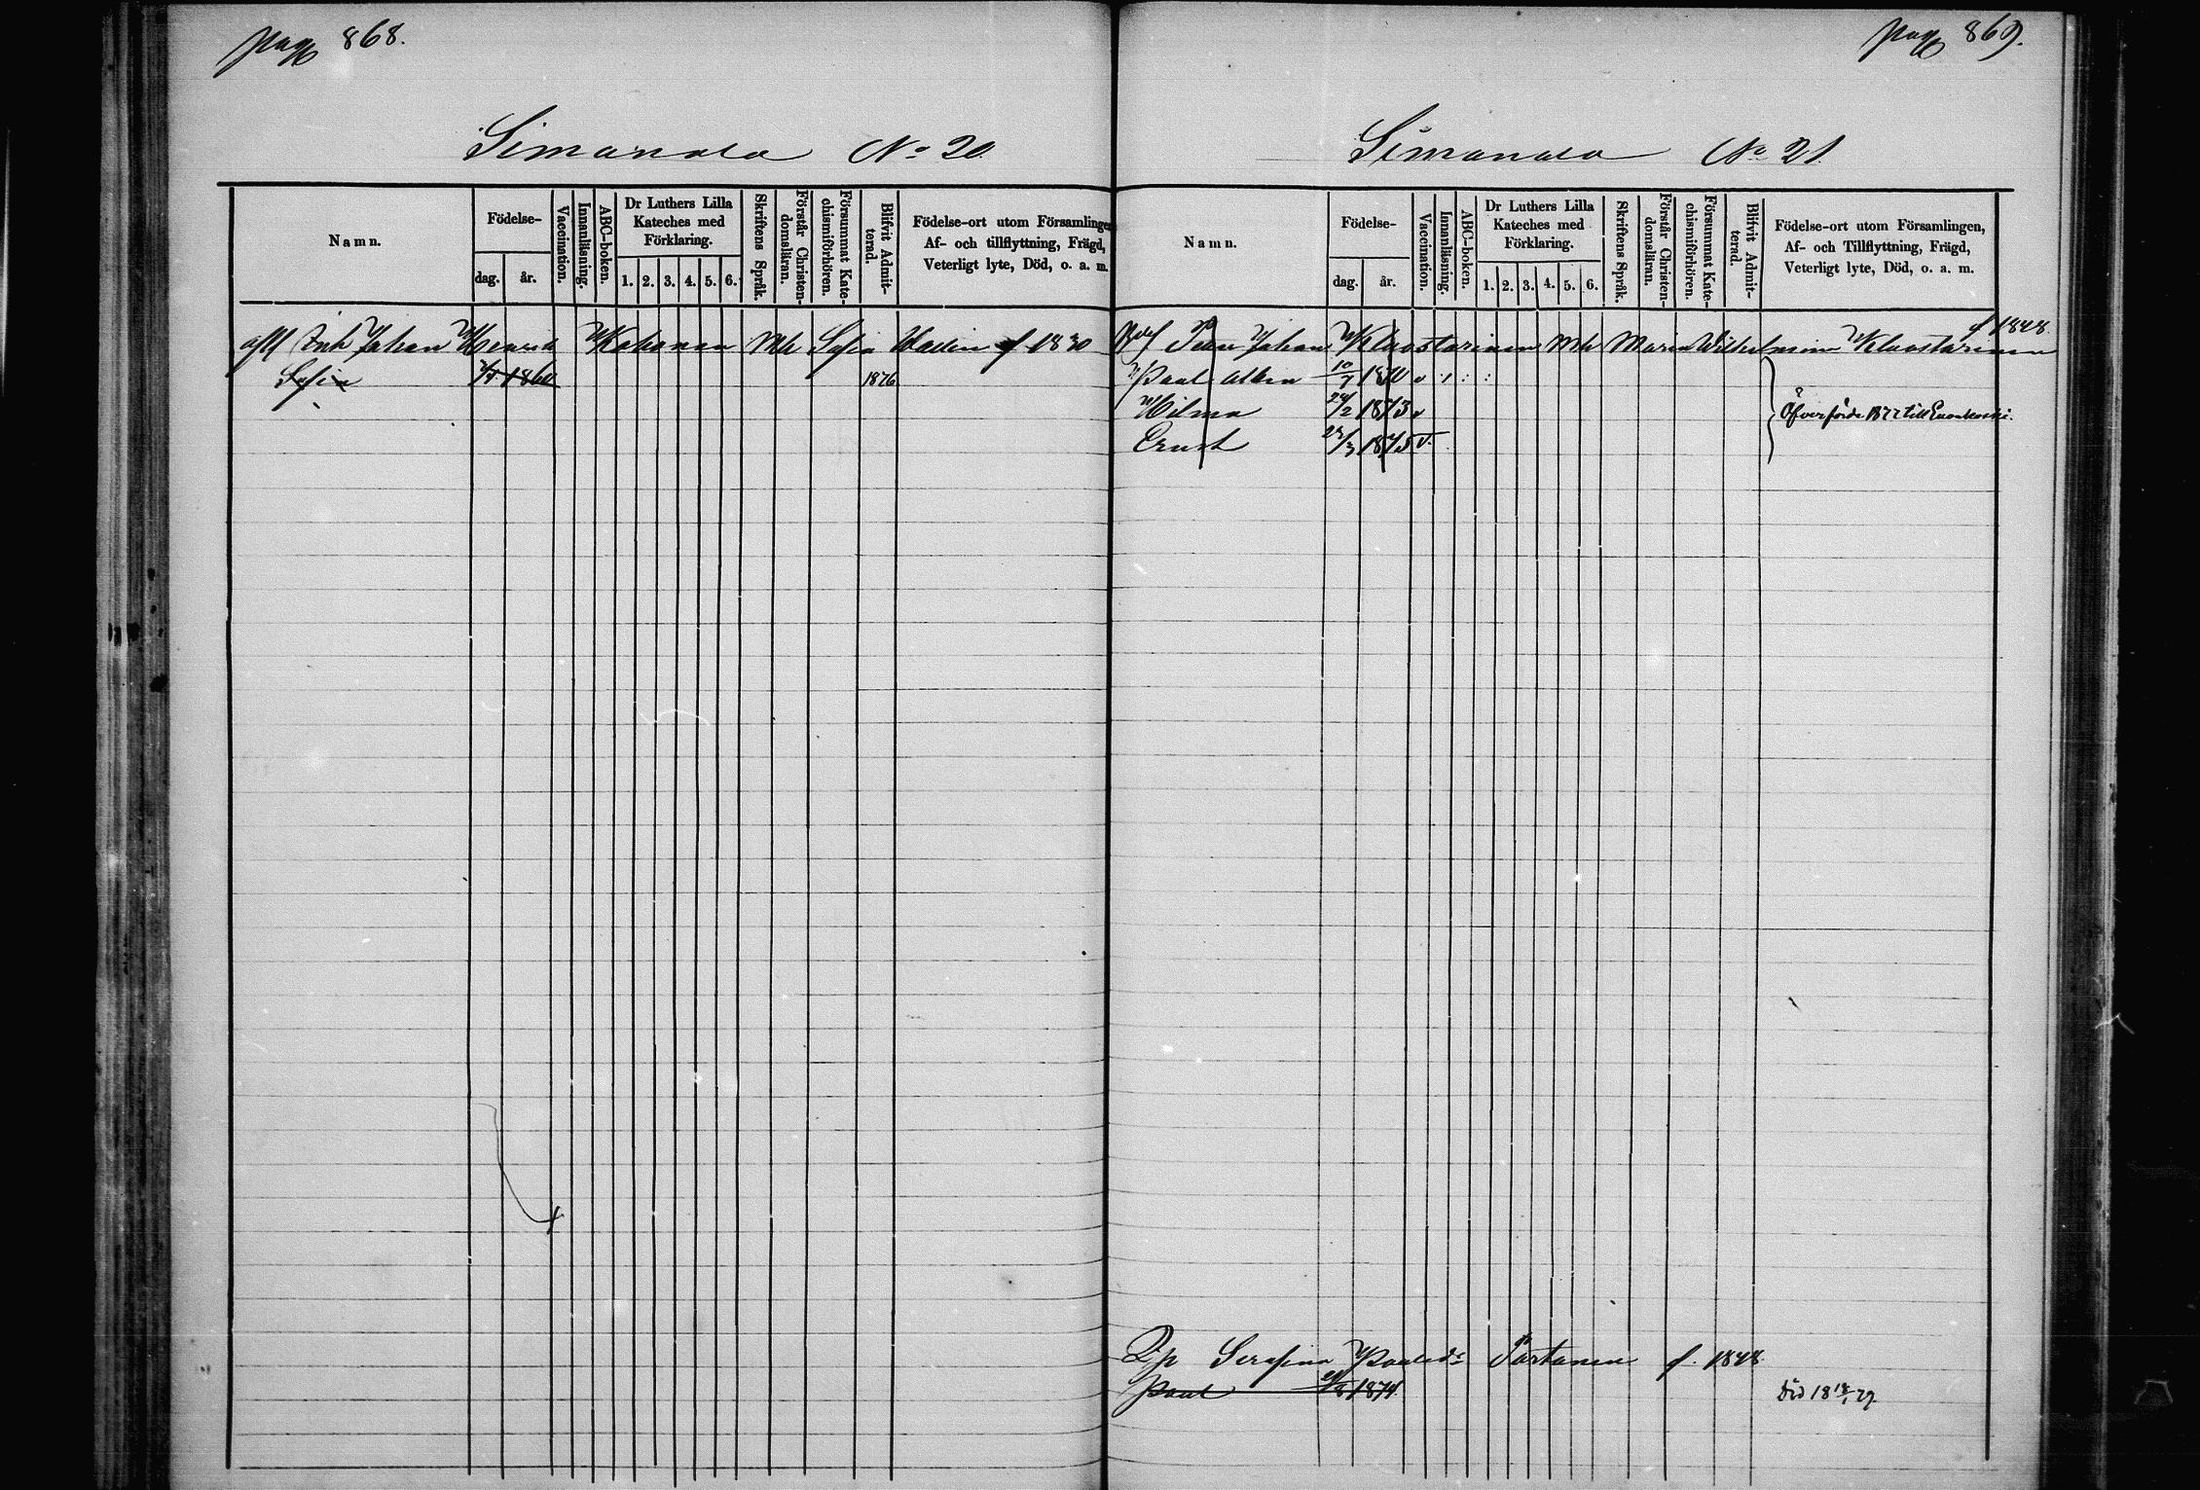 pag 868.
Simanala No 20
Namn.
Födelse-
dag.
år.
Vaccination.
Innanläsning.
ABC-boken.
Dr Luthers Lilla
Kateches med
Förklaring.
1. 2. 3. 4. 5. 6.
Skriftens Språk.
Förstår Christen-
domsläran.
Försummat Kate-
chismiförhören.
Blifvit Admit-
terad.
Födelse-ort utom Församlingen
Af- och tillflyttning, Frägd,
Veterligt lyte, Död, o. a. m.
Johan Henrik Kohonen Mh Sofia f 1830
Sofia 1860 1876
pag 869.
Simanala No 21
Namn.
Födelse-
dag.
år.
Vaccination.
Innanläsning.
ABC-boken.
Dr Luthers Lilla
Kateches med
Förklaring.
1. 2. 3. 4. 5. 6.
Skriftens Språk.
Förstår Christen-
domsläran.
Försummat Kate-
chismiförhören.
Blifvit Admit-
terad.
Födelse-ort utom Församlingen,
Af- och Tillflyttning, Frägd,
Veterligt lyte, Död, o. a. m.
Johan Klaostarinen Mh Maria Wilhelmina Klaostarinen f 1848
Paul Albin 10/7 1870 v
Hilma 24/2 1873 v
Ernst 1875 v.
Öfverförde 1877 till Enonkoski.
Qp Serafina Paulsdr Partanen f. 1848.
Paul 1874.
Död